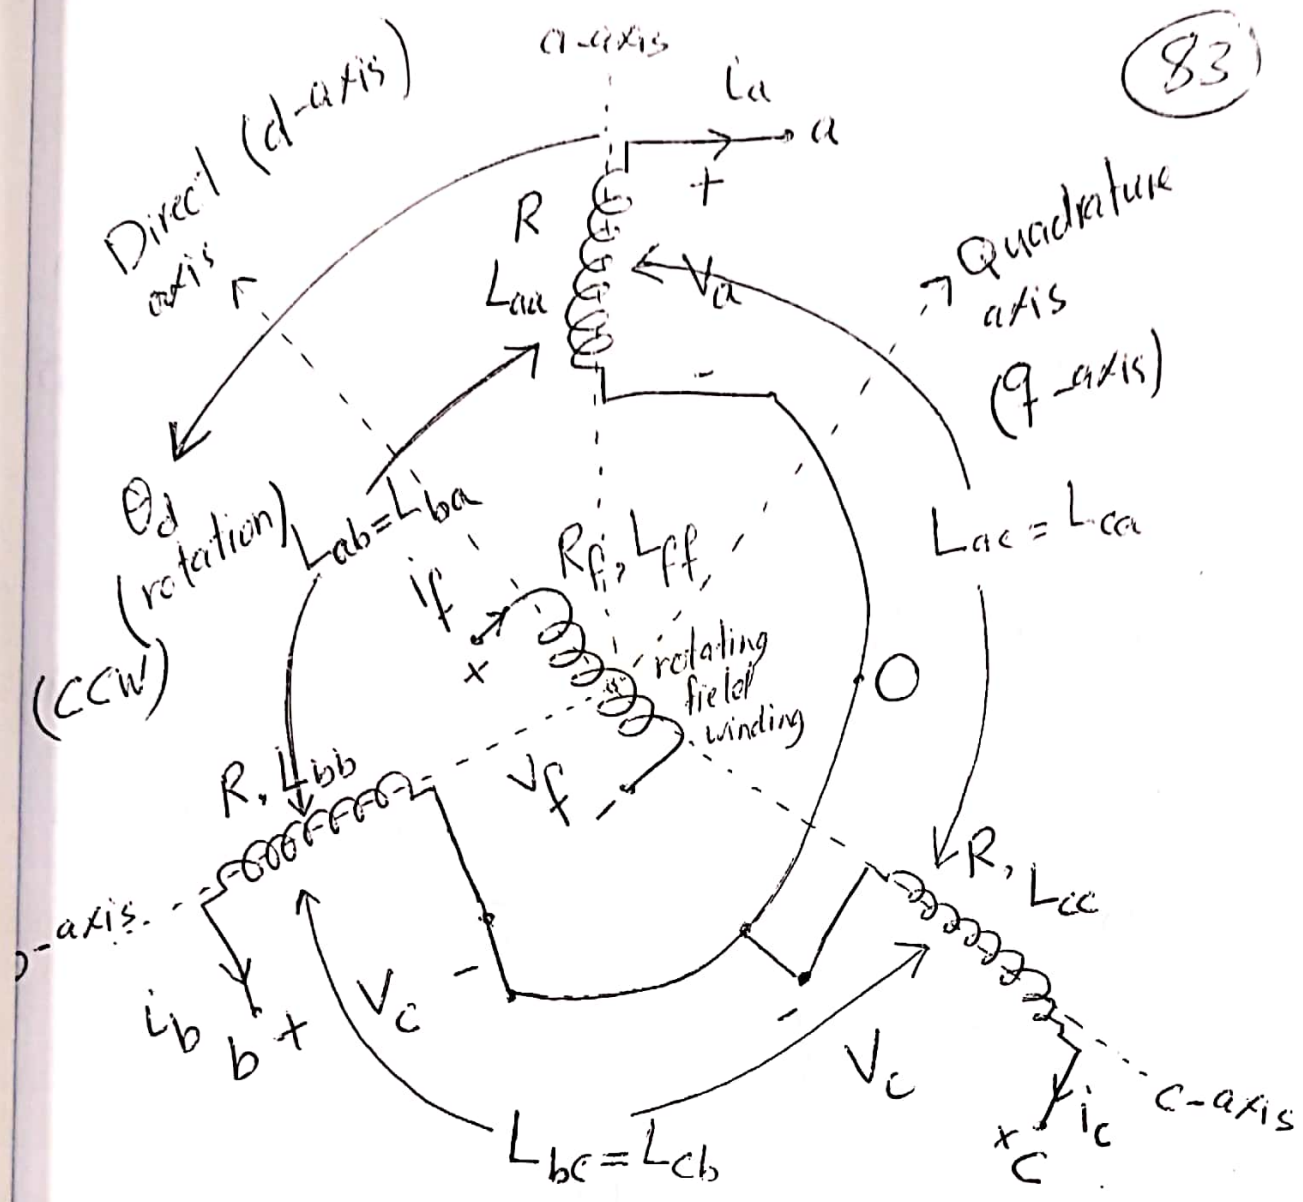 a-axis
83
ia
a
+
Direct (d-axis)
axis
R
Laa
Va
-
Quadrature
axis
(q-axis)
θd
(rotation)
(CCW)
Lab=Lba
Lac = Lca
if
x
Rf, Lff,
rotating
field
winding
O
Vf
-
R, Lbb
-axis
ib
b +
Vc
-
R, Lcc
-
Vc
c-axis
ic
x
C
Lbc=Lcb